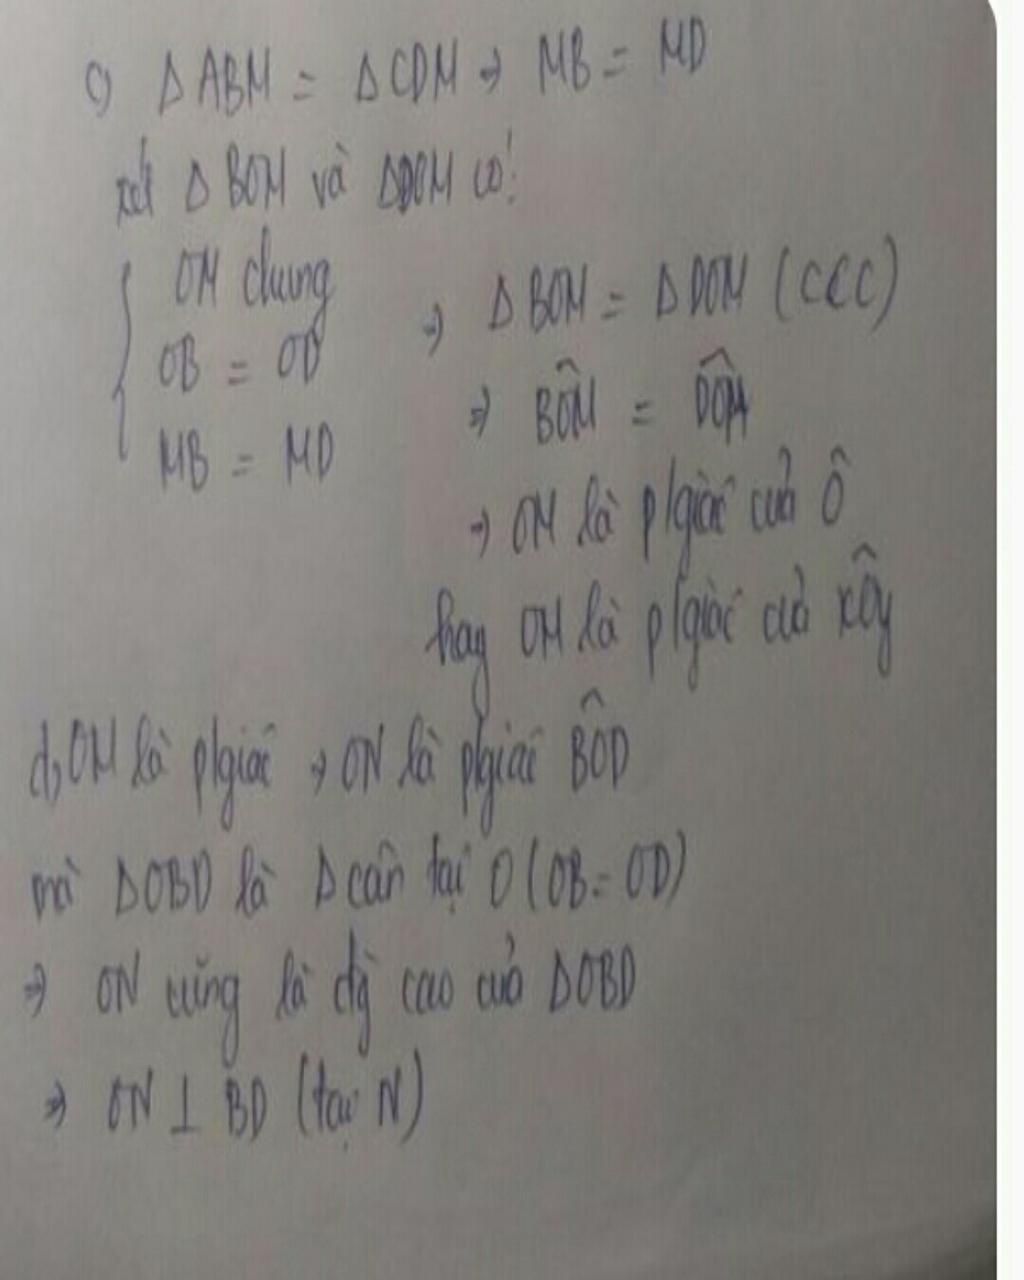 c) Δ ABM = Δ CDM → MB = MD
xét Δ BOM và ΔDOM có:
{ OM chung
OB = OD
MB = MD
⇒ Δ BOM = Δ DOM (CCC)
⇒ BÔM = DÔM
→ OM là p/giác của Ô
hay OM là p/giác của xÔy
d, OM là p/giác → ON là p/giác BÔD
mà ΔOBD là Δ cân tại O (OB = OD)
⇒ ON cũng là đg cao của ΔOBD
⇒ ON ⊥ BD (tại N)